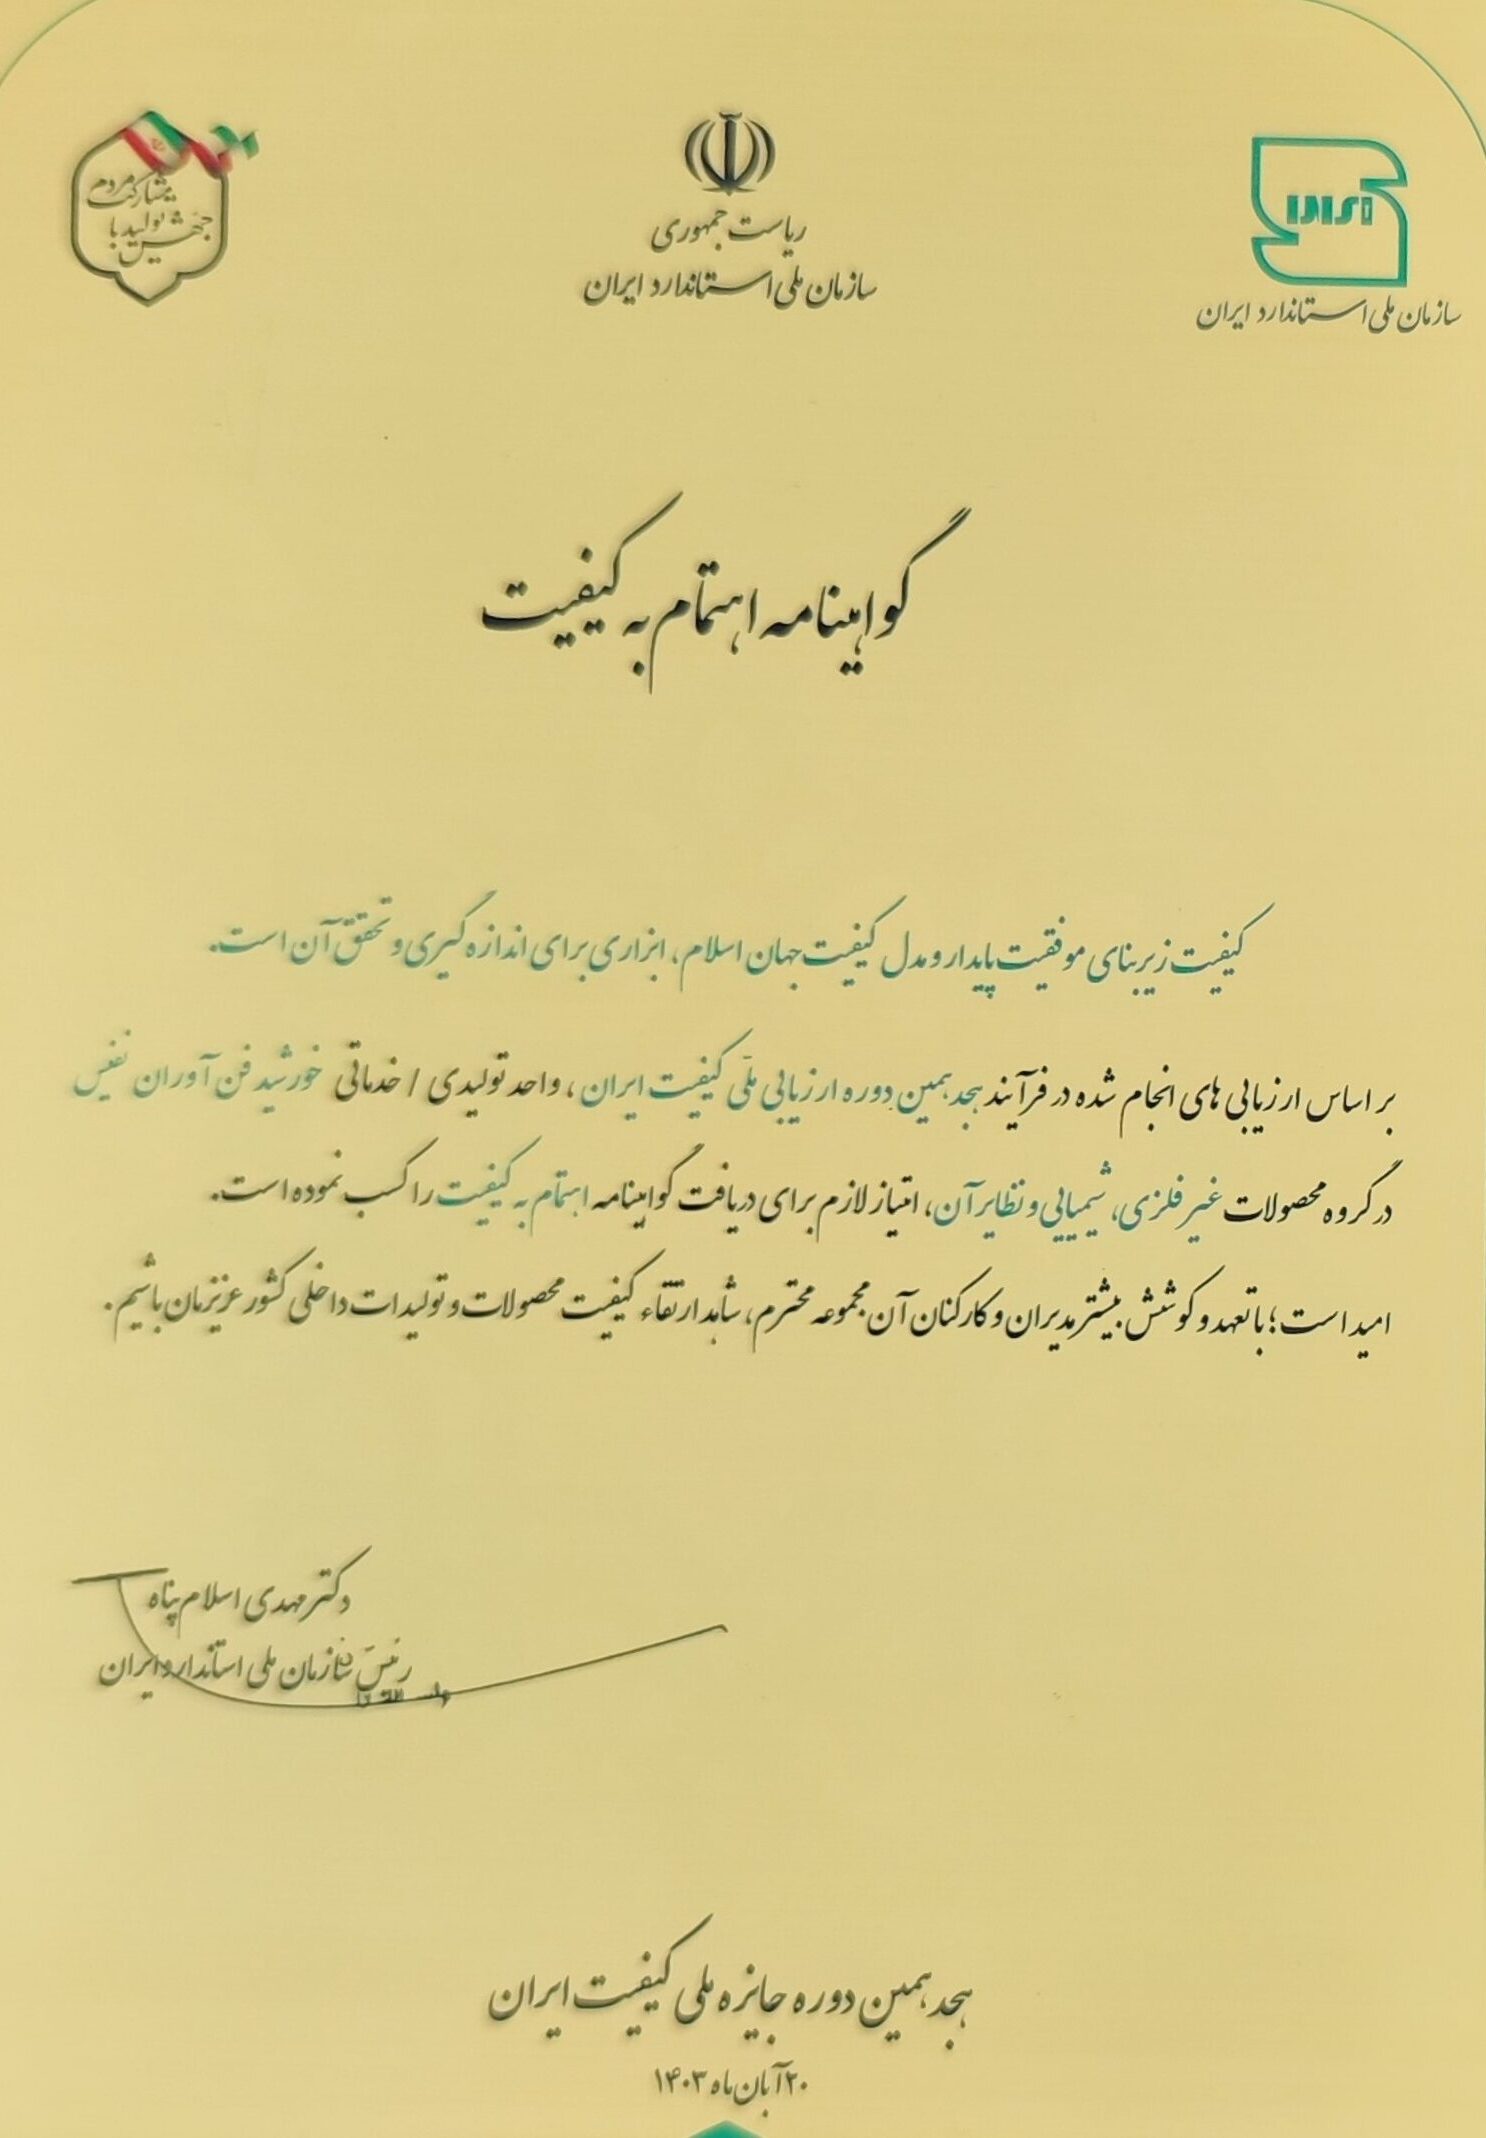 جهش تولید با
مشارکت مردم
ریاست جمهوری
سازمان ملی استاندارد ایران
سازمان ملی استاندارد ایران
گواهینامه اهتمام به کیفیت
کیفیت زیربنای موفقیت پایدار و مدل کیفیت جهان اسلام، ابزاری برای اندازه گیری و تحقق آن است.
بر اساس ارزیابی های انجام شده در فرآیند هجدهمین دوره ارزیابی ملّی کیفیت ایران، واحد تولیدی / خدماتی خورشید فن آوران نفیس
در گروه محصولات غیر فلزی، شیمیایی و نظایر آن، امتیاز لازم برای دریافت گواهینامه اهتمام به کیفیت را کسب نموده است.
امید است؛ با تعهد و کوشش بیشتر مدیران و کارکنان آن مجموعه محترم، شاهد ارتقاء کیفیت محصولات و تولیدات داخلی کشور عزیزمان باشیم.
دکتر مهدی اسلام پناه
رئیس سازمان ملی استاندارد ایران
هجدهمین دوره جایزه ملی کیفیت ایران
۲۰ آبان ماه ۱۴۰۳